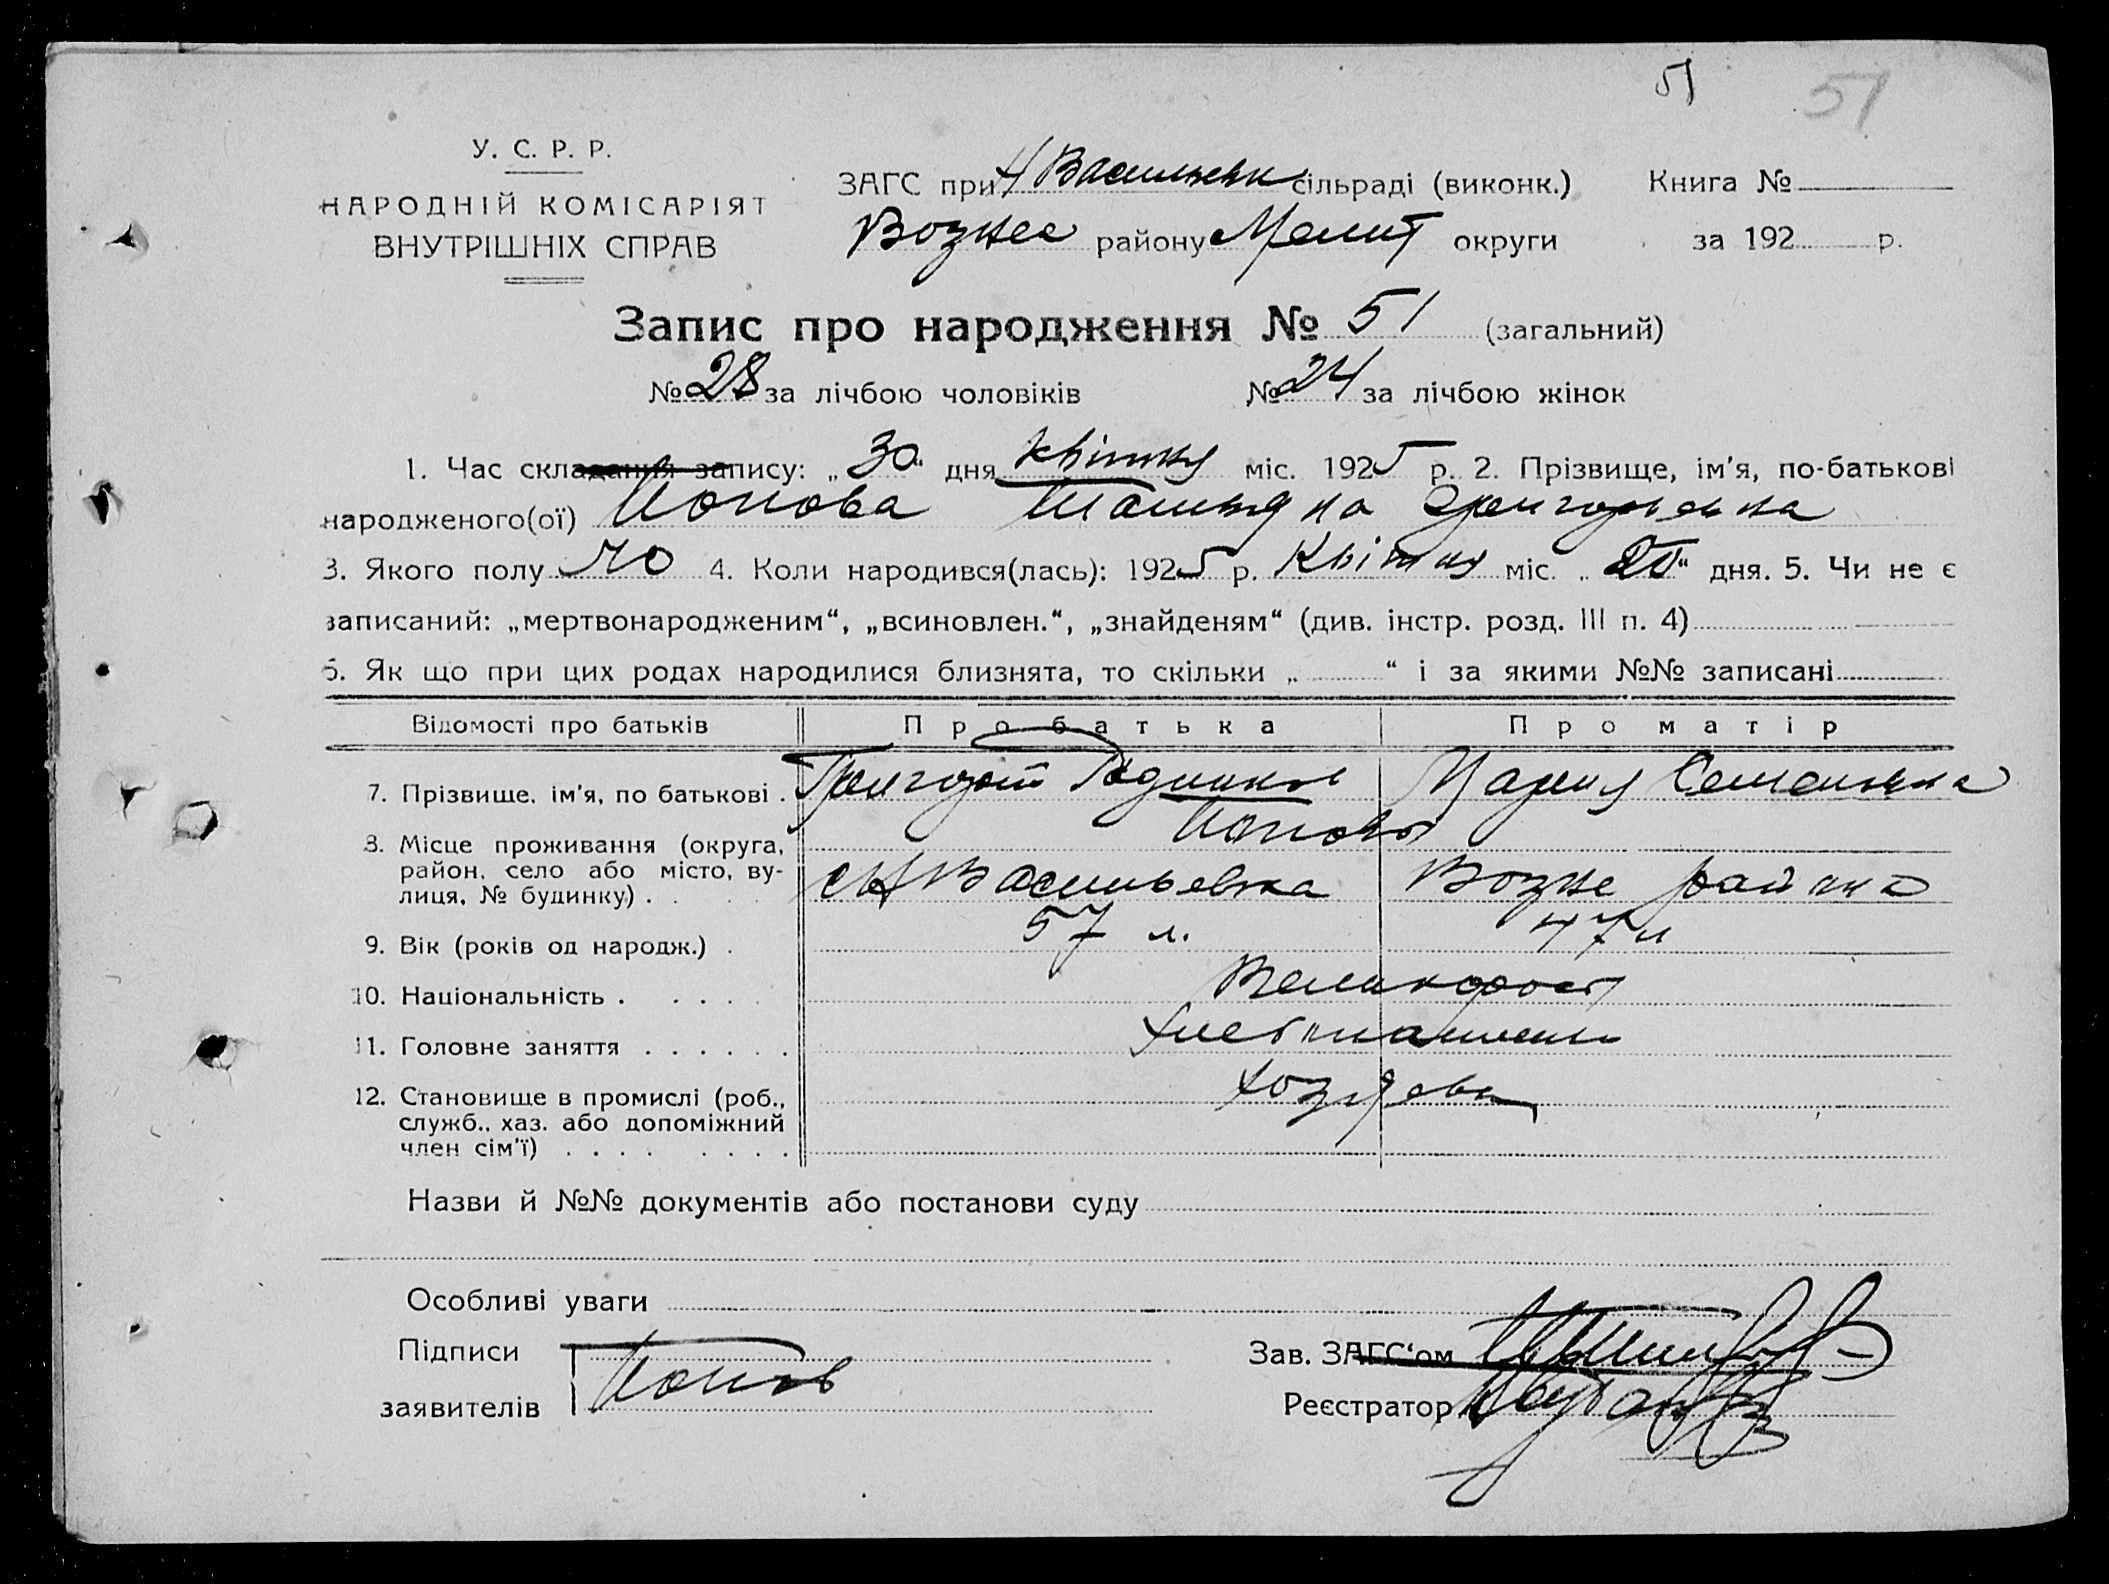 51 51
У. С. Р. Р.
НАРОДНІЙ КОМІСАРІЯТ
ВНУТРІШНІХ СПРАВ
ЗАГС при Н Васильевк сільраді (виконк.) Книга №
Вознес району Мелит округи за 192 р.
Запис про народження № 51 (загальний)
№ 28 за лічбою чоловіків № 24 за лічбою жінок
1. Час складання запису: „30“ дня квітня міс. 1925 р. 2. Прізвище, ім'я, по-батькові
народженого(ої) Попова
3. Якого полу 4. Коли народився(лась): 1925 р. Квітня міс. „ “ дня. 5. Чи не є
записаний: „мертвонародженим“, „всиновлен.“, „знайденям“ (див. інстр. розд. III п. 4)
6. Як що при цих родах народилися близнята, то скільки „ “ і за якими №№ записані
Відомості про батьків Про батька Про матір
7. Прізвище, ім'я, по батькові . Григорій Мария Семеновна
Поповы
8. Місце проживання (округа,
район, село або місто, ву-
лиця, № будинку) . . с Н Васильевка Возне района
9. Вік (років од народж.) . 57 л. 47 л
10. Національність . . . . Великоросы
11. Головне заняття . . . . . . Хлебпашенн
12. Становище в промислі (роб.,
служб., хаз. або допоміжний
член сім'ї) . . . . . . . . Хозяева
Назви й №№ документів або постанови суду
Особливі уваги
Підписи
заявителів Попов
Зав. ЗАГС'ом
Реєстратор